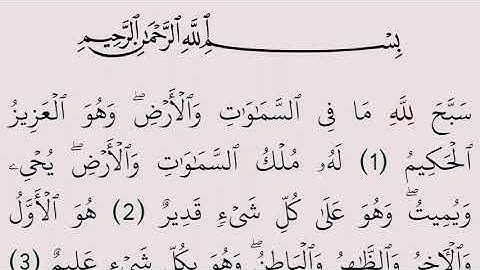 بِسْمِ ٱللَّهِ ٱلرَّحْمَٰنِ ٱلرَّحِيمِ
سَبَّحَ لِلَّهِ مَا فِى ٱلسَّمَٰوَٰتِ وَٱلْأَرْضِ ۖ وَهُوَ ٱلْعَزِيزُ
ٱلْحَكِيمُ (1) لَهُۥ مُلْكُ ٱلسَّمَٰوَٰتِ وَٱلْأَرْضِ ۖ يُحْىِۦ
وَيُمِيتُ ۖ وَهُوَ عَلَىٰ كُلِّ شَىْءٍ قَدِيرٌ (2) هُوَ ٱلْأَوَّلُ
وَٱلْءَاخِرُ وَٱلظَّٰهِرُ وَٱلْبَاطِنُ ۖ وَهُوَ بِكُلِّ شَىْءٍ عَلِيمٌ (3)